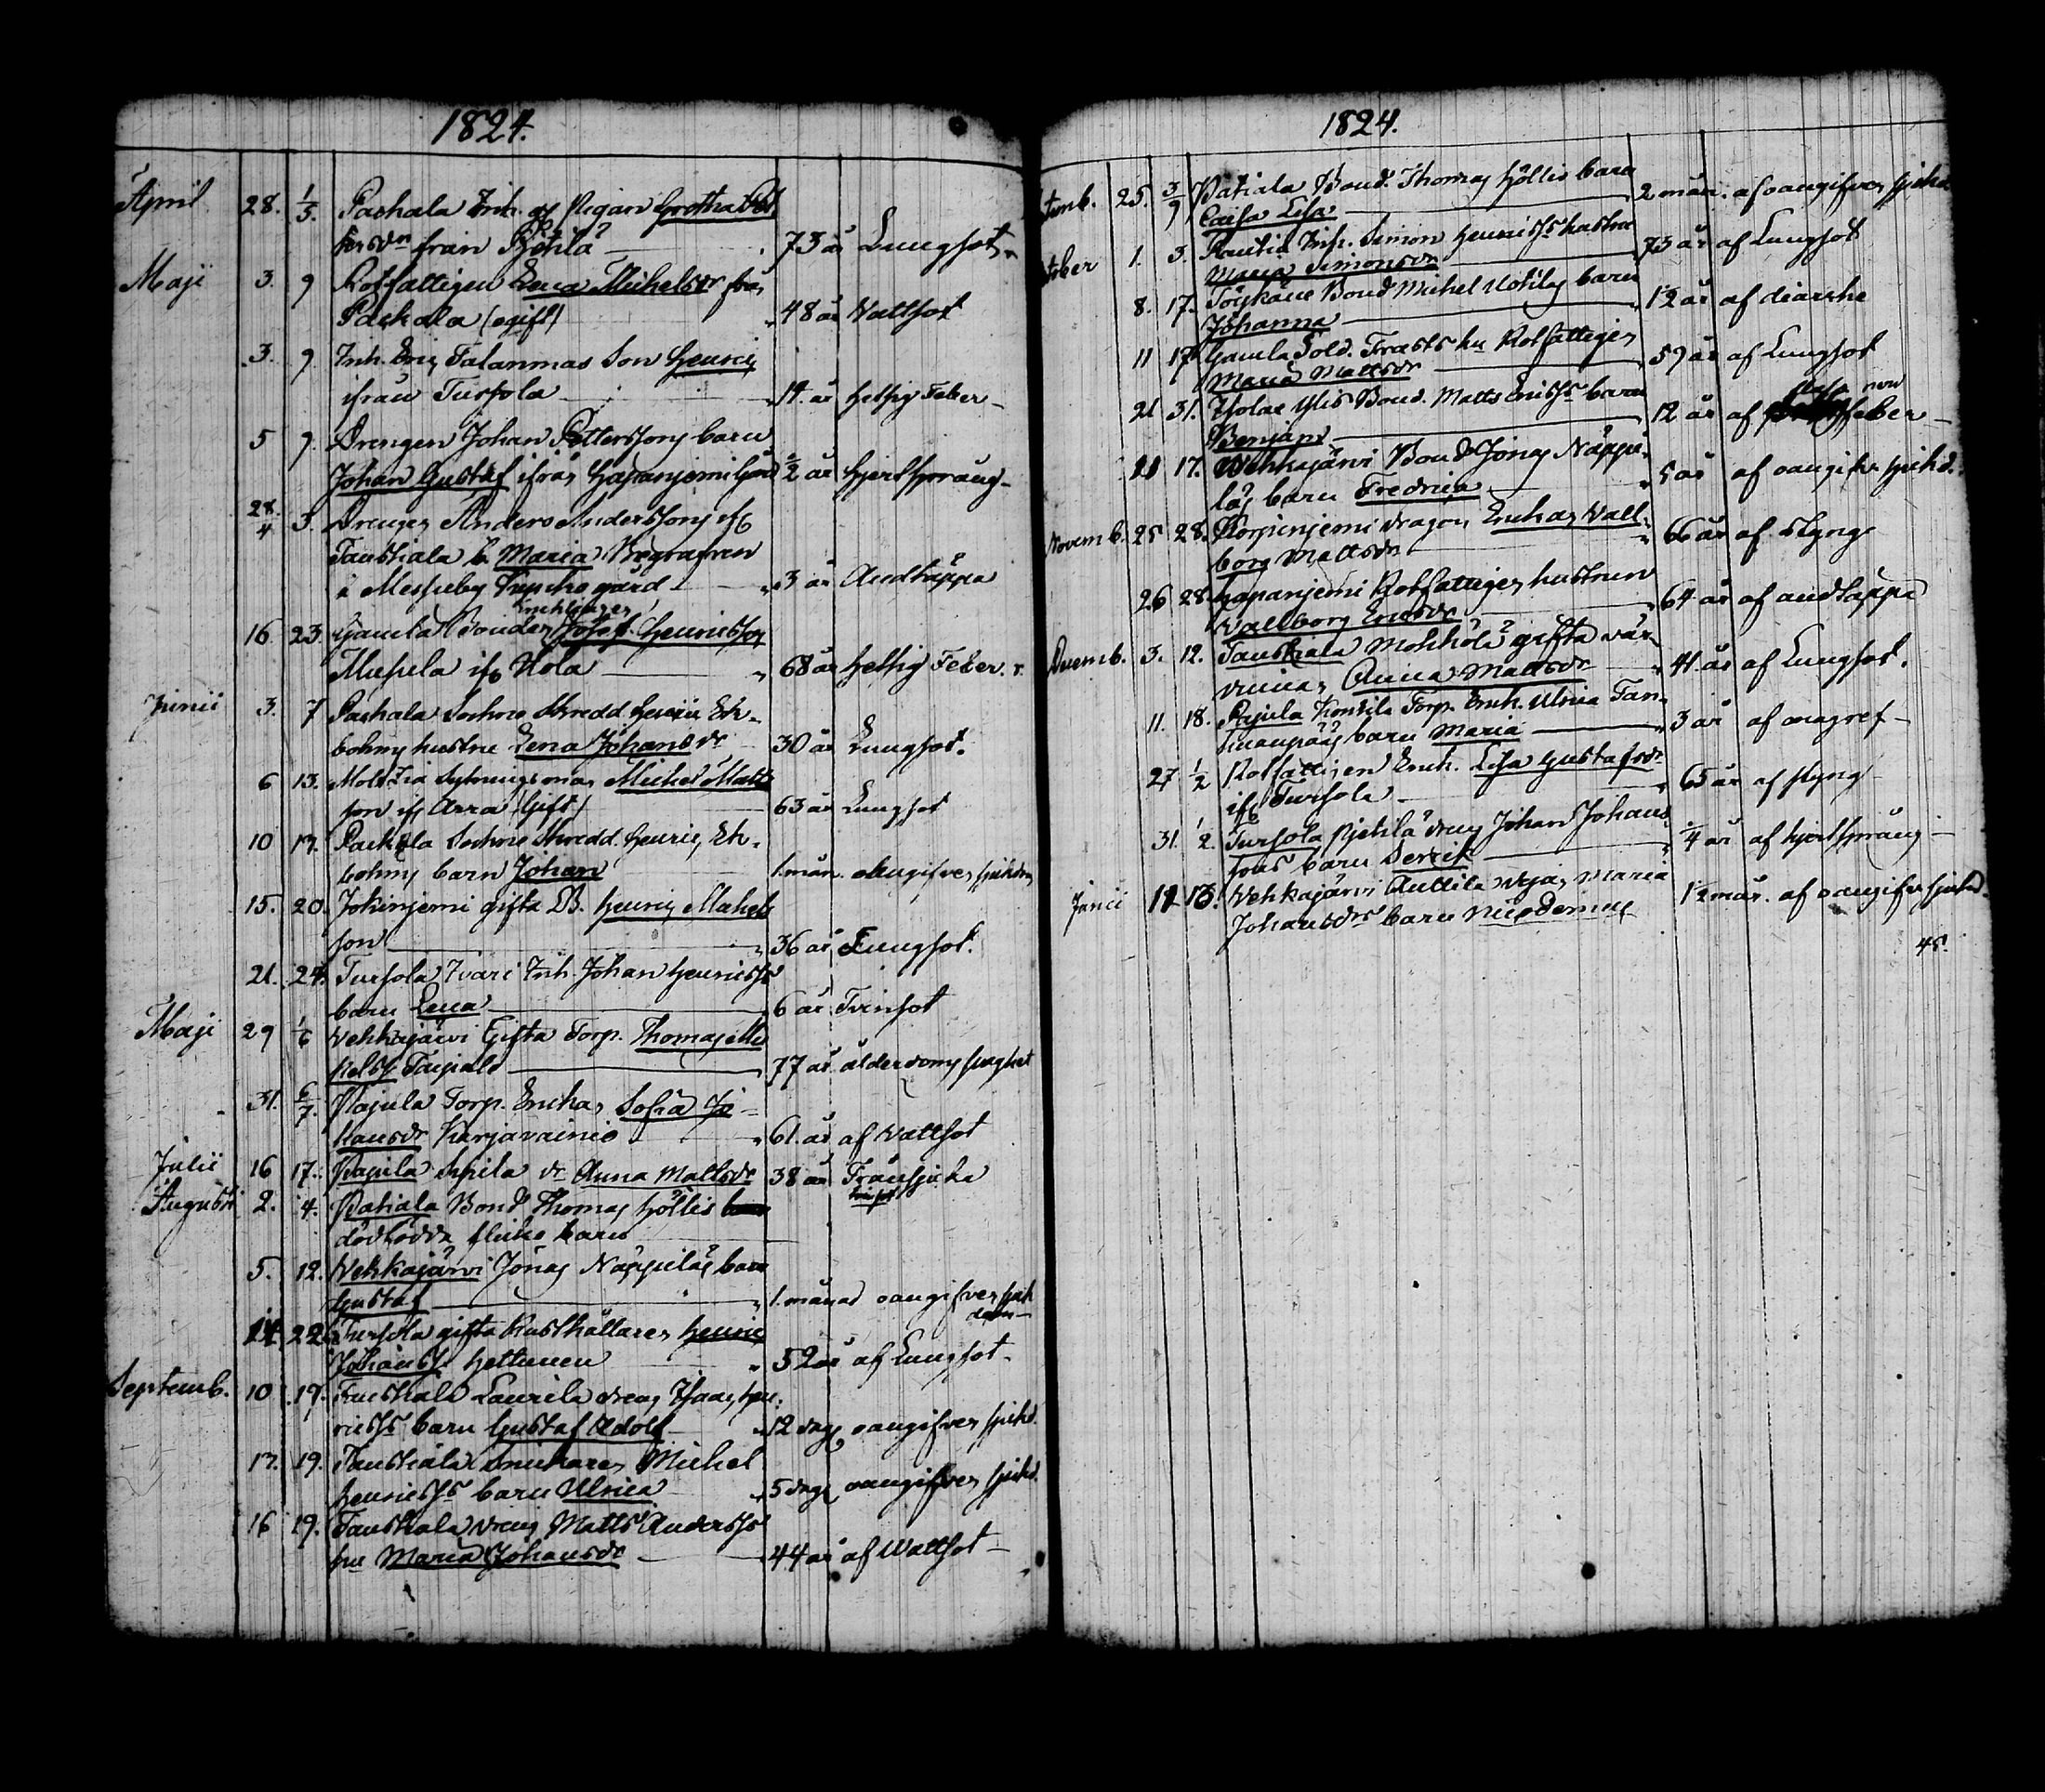 1824.
April 28. 1/5. Paskala Inh. af Pigan Gretha Pet
tersdr från Pjätilä 73 år Lungsot
Maji 3. 9 Rotfattigen Lena Michelsdr från
Paskala (ogift) 48 år Wattsot
3. 9. Inh. Eric Talanmas Son Henric
ifrån Tursola 14. år Hetsig Feber
5 9. Drengen Johan Pettersons barn
Johan Gustaf ifrån Hapanjemi Gård 1/2 år Hjertsprång
28/4 3. Drengen Anders Anderssons if
Taustiala b. Maria Begrafven
i Messuby Kyrko gård 3 år Andtäppa
Enklingen
16. 23. Gamla Bonden Josef Henricsson
ifrån Uola 68 år Hetsig Feber.
Junii 3. 7 Paskala Sockne Skredd. Henric Ek-
bohms hustru Lena Johansdr 30 år Lungsot.
6 13. Sytningsman Michel Matts
son if Arra (Gift) 63 år Lungsot
10 17. Paskala Sockne Skredd. Henric Ek-
bohms barn Johan 1. mån. oangifven sjukdom
15. 20. Jokinjemi gifta B. Henric Michels
son 36 år Lungsot.
21. 24. Tursola Ivari Inh. Johan Henricss
barn Lena 6 år Tvinsot
Maji 29 1/6 Wehkajärvi Gifta Torp. Thomas Mic
kelss. Taipale 77 år ålderdoms svaghet
31. 6/7. Pajula Torp. Enkan Sofia Jo
hansdr Karjavainio 61. år af Wattsot
Julii 16 17. Pajula Sipila dr Anna Mattsdr 38 år Tränsjuka
tvinsot
Augusti 2. 4. Patiala Bond. Thomas Höllis
dödfödda flicko barn
5. 12. Wehkajärvi Jonas Näppiläs barn
Gustaf 1. månad oangifven sjuk
dom
14. 22. Tursola gifta Rusthållaren Henric
Johanss. Hettunen 52 år af Lungsot.
Septemb. 10 19. Taustiala Laurila dreng Isaac Hen-
ricss barn Gustaf Adolf 12 dagr oangifven sjukd.
17. 19. Taustiala Snickaren Michel
Henricss barn Ulrica 5 dagr oangifven sjukd.
16 19. Taustiala dreng Matts Anderss
hu Maria Johansdr 44 år af Wattsot
1824.
temb. 25. 3/9 Patiala Bond. Thomas Höllis barn
Caisa Lisa 2 mån. af oangifven sjukd
tober 1. 3. Rautia Inh. Simon Henricss hustru
Maria Simonsdr 73 år af Lungsot
8. 17. Bond Michel Uotilas barn
Johanna 1/2 år af diarrhe
11 17 Gamla Sold. Frasts hu Rotfattigen
Maria Mattsdr 59 år af Lungsot
21 31. Isolax Ylis Bond. Matts Ericss barn
Benjam 12 år af feber
21 17. Wehkajärvi Bond Jonas Näppi-
läs barn Fredrica 5 år af oangifven sjukd.
Novemb. 25 28. Korpinjemi dragon Enkan Wall-
borg Mattsdr 66 år af Styng
26 28. Hapanjemi Rotfattigen hustrun
Wallborg Ericsdr 64 år af andtäppa
Decemb. 3. 12. Taustiala Mokkölä gifta vär-
dinnan Anna Mattsdr 41. år af Lungsot.
11. 18. Pajula Torp. Enk. Ulrica Tan-
barn Maria 3 år af
27 1/2 Rotfattigen Enk. Lisa Gustafsdr
if Tursola 65 år af styng
31. 1/2. Tursola Pjetilä dreng Johan Johans
sons barn Serrik 1/4 år af hjertsprång
Junii 11 13. Wehkajärvi Anttila Maria
Johansdrs barn Nicodemus 1/2 mån. af oangifven sjukd.
45.